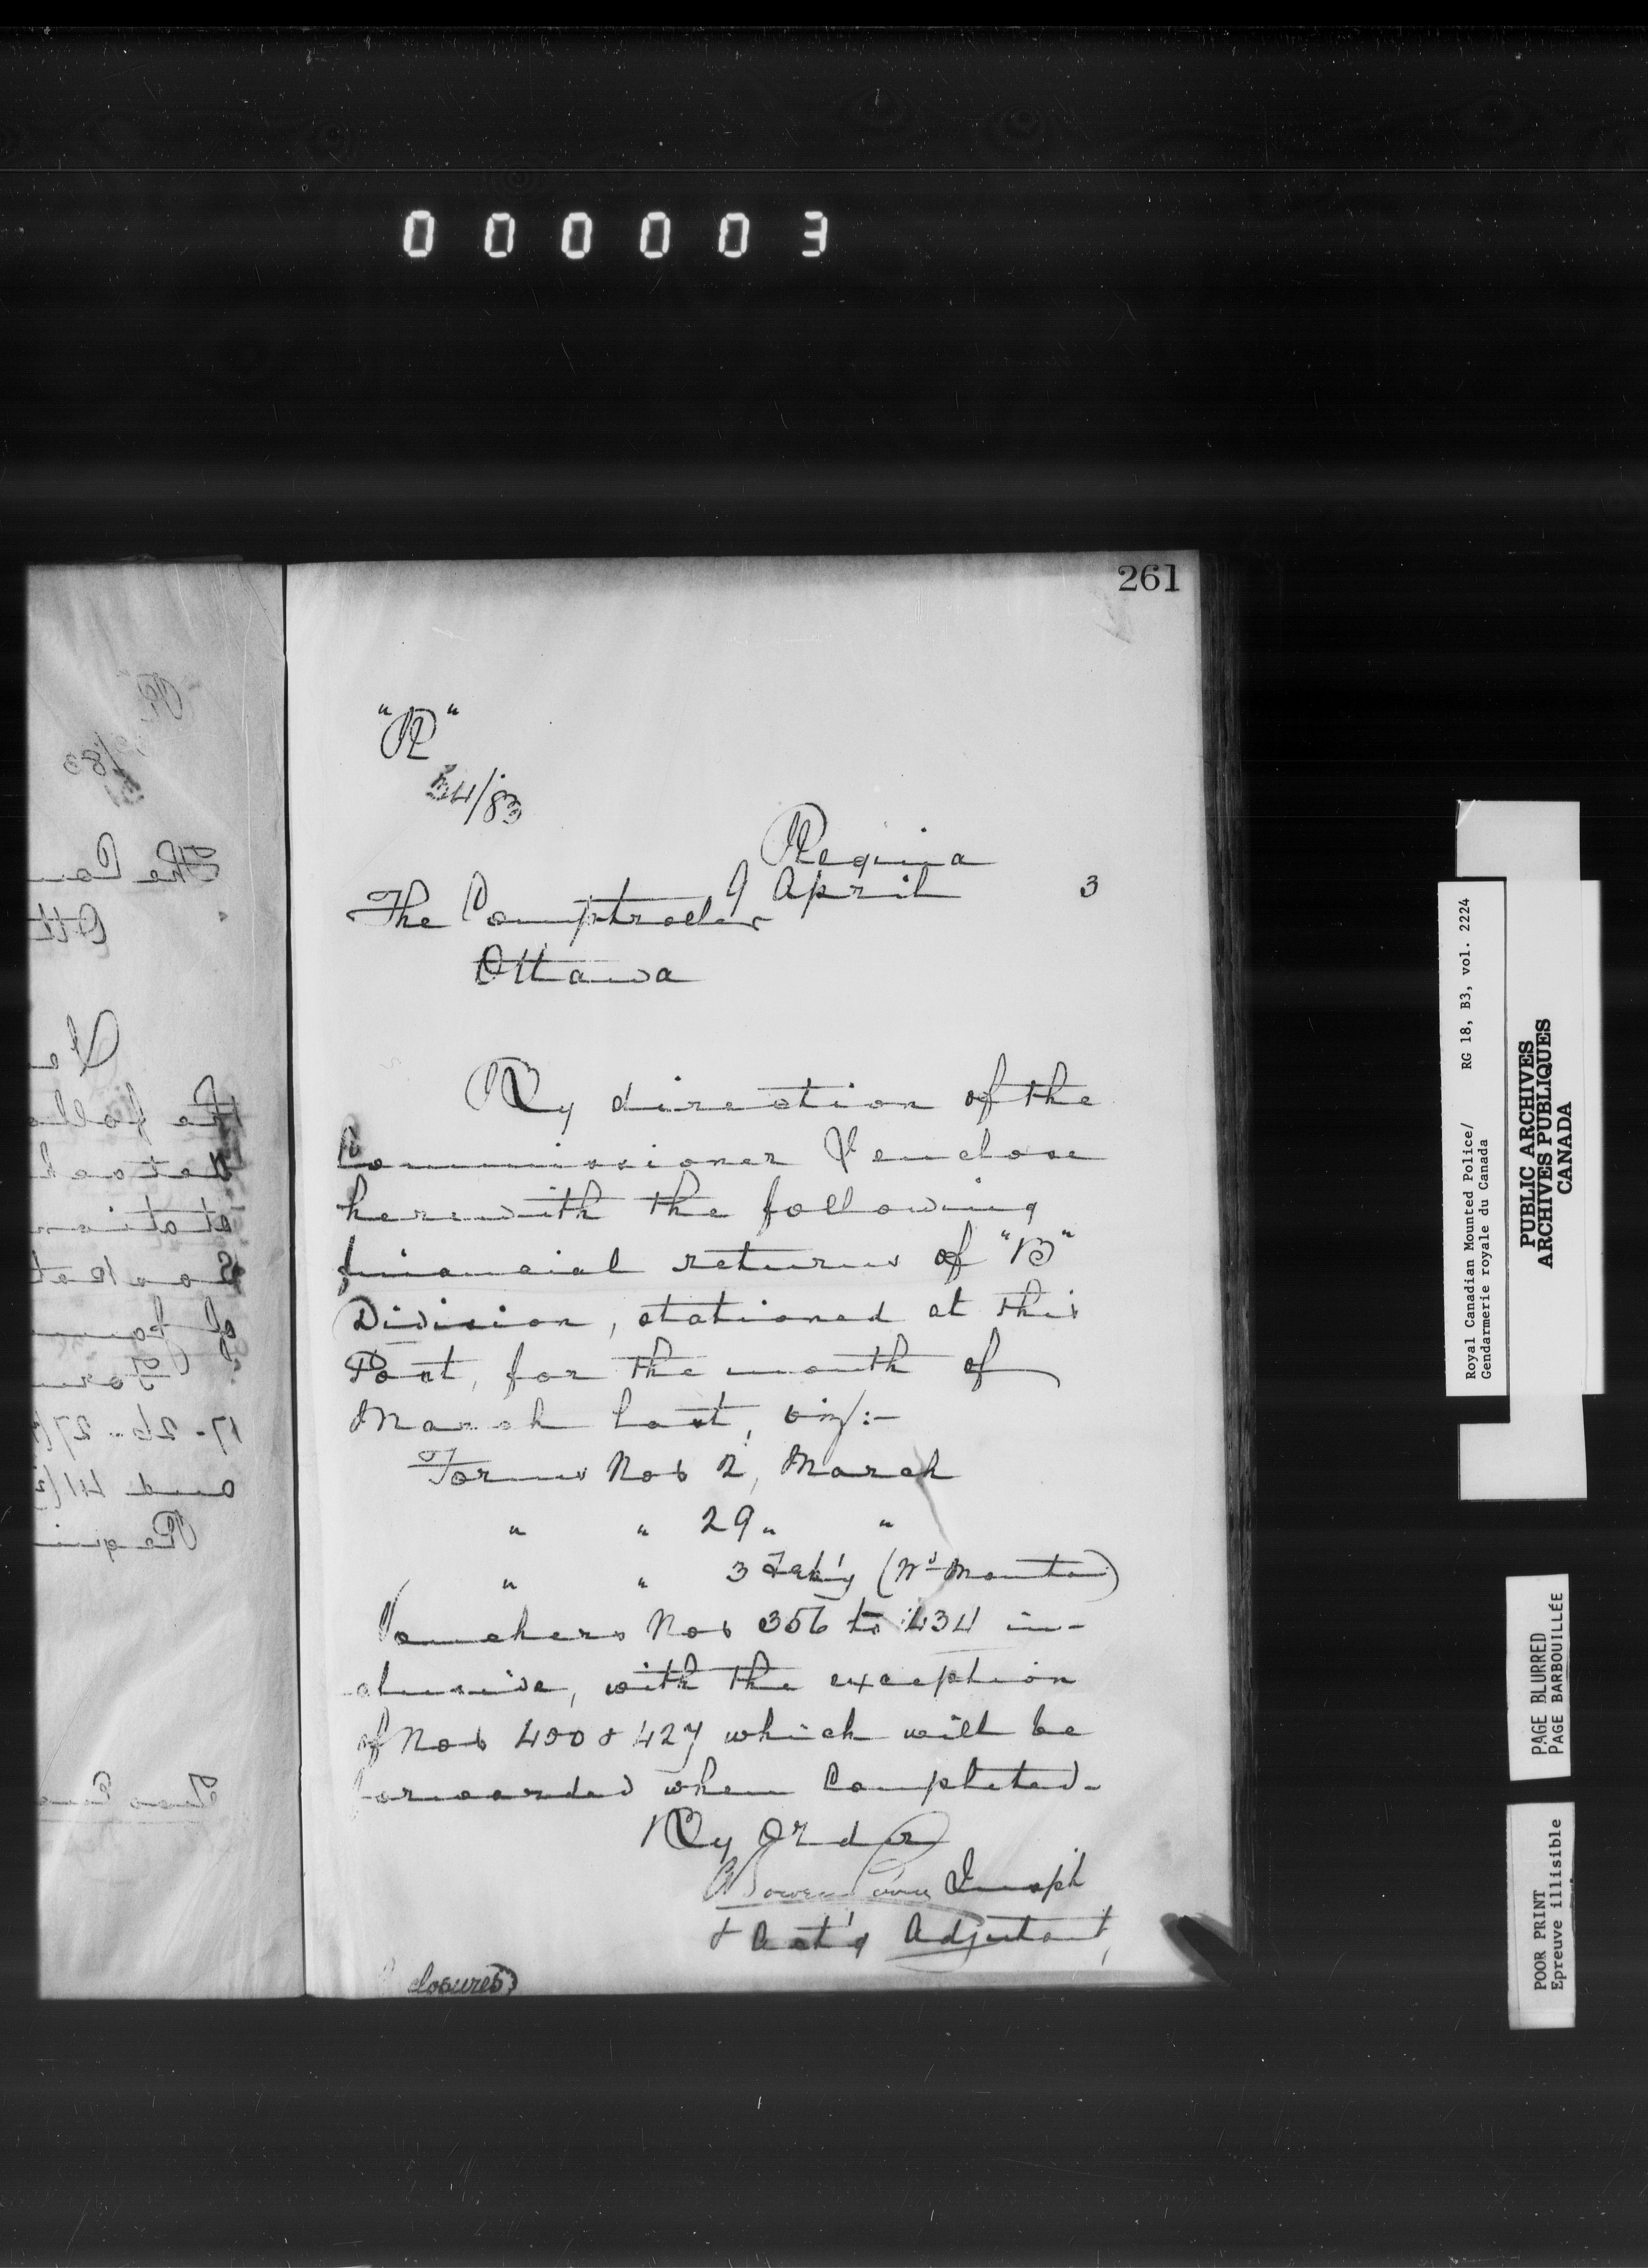 000003
261
"R"
34/83
Regina
9 April 3
The Comptroller
Ottawa
By direction of the
Commissioner I enclose
herewith the following
financial returns of "B"
Division, stationed at this
Post, for the month of
March last, viz:-
Forms Nos 2, March
" " 29 " "
" " 3 Feb'y (Wd Mountain)
Vouchers Nos 356 to 434 in-
clusive, with the exception
of Nos 400 & 427 which will be
forwarded when Completed-
By Order
Bowen Perry Insp
& Act'g Adjutant,
closures
Royal Canadian Mounted Police/ RG 18, B3, vol. 2224
Gendarmerie royale du Canada
PUBLIC ARCHIVES
ARCHIVES PUBLIQUES
CANADA
PAGE BLURRED
PAGE BARBOUILLÉE
POOR PRINT
Epreuve illisible